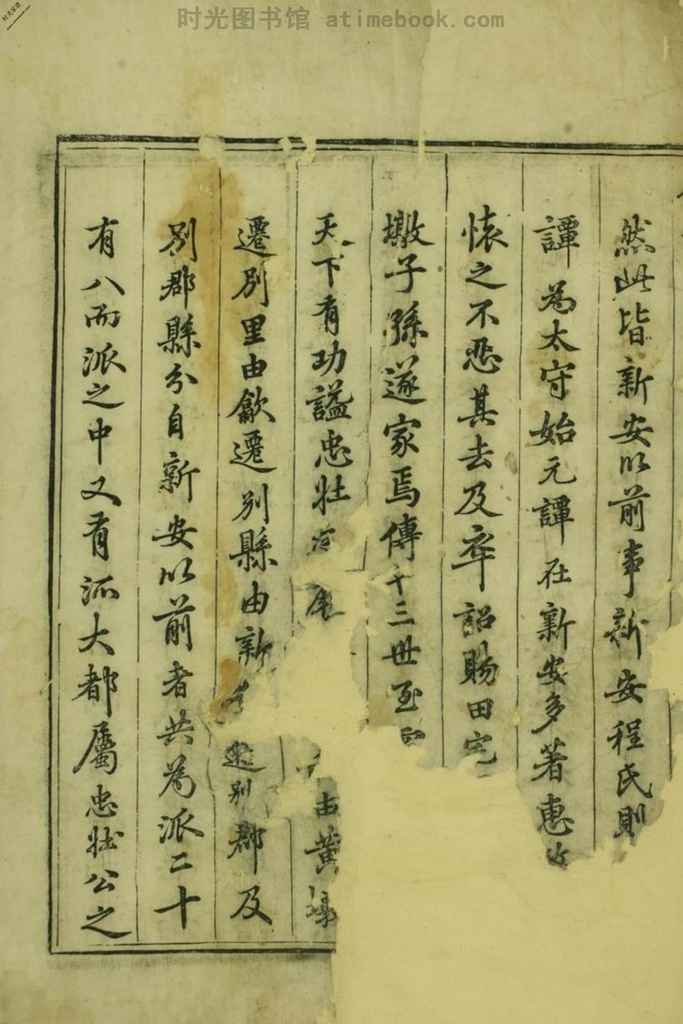 时光图书馆 atimebook.com
然此皆新安以前事新安程氏則
譚為太守始元譚在新安多著惠
懐之不忍其去及卒詔賜田宅
墩子孫遂家焉傳十三世至
天下有功謚忠壯 古黃墩
遷別里由歙遷別縣由新 遷別郡及
別郡縣分自新安以前者共為派二十
有八而派之中又有派大都屬忠壯公之